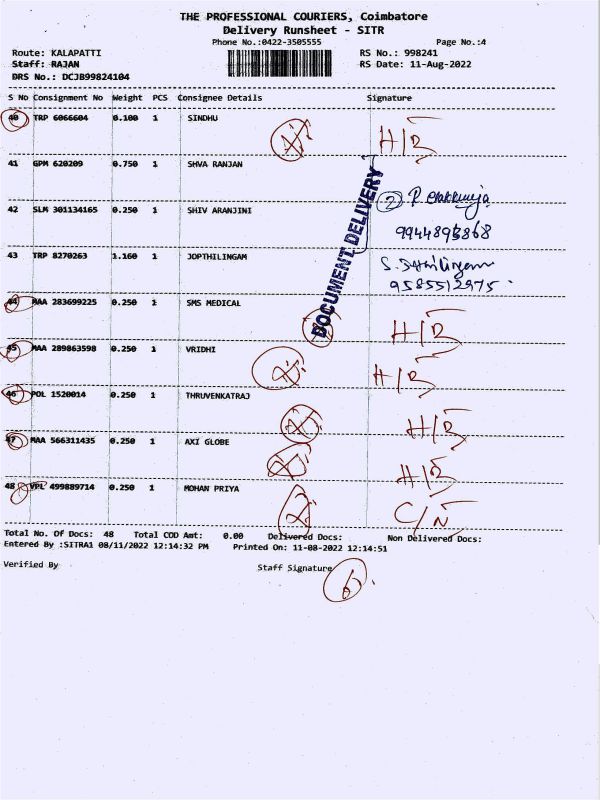 THE PROFESSIONAL COURIERS, Coimbatore
Delivery Runsheet - SITR
Phone No.:0422-3505555 Page No.:4
Route: KALAPATTI RS No.: 998241
Staff: RAJAN RS Date: 11-Aug-2022
DRS No.: DCJB99824104
S No Consignment No Weight PCS Consignee Details Signature
40 TRP 6066604 0.100 1 SINDHU H/B
41 GPM 620209 0.750 1 SHVA RANJAN
2
42 SLM 301134165 0.250 1 SHIV ARANJINI
43 TRP 8270263 1.160 1 JOPTHILINGAM
9585512975
DOCUMENT DELIVERY
44 MAA 283699225 0.250 1 SMS MEDICAL H/B
45 MAA 289863598 0.250 1 VRIDHI H/B
46 POL 1520014 0.250 1 THRUVENKATRAJ H/B
47 MAA 566311435 0.250 1 AXI GLOBE H/B
48 VPL 499889714 0.250 1 MOHAN PRIYA C/N
Total No. Of Docs: 48 Total COD Amt: 0.00 Delivered Docs: Non Delivered Docs:
Entered By :SITRA1 08/11/2022 12:14:32 PM Printed On: 11-08-2022 12:14:51
Verified By Staff Signature
6